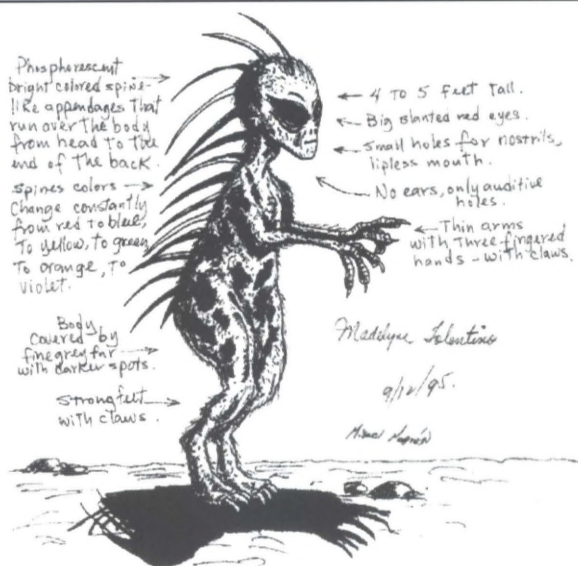 Phosphorescent
bright colored spine-
like appendages that
run over the body
from head to the
end of the back.
Spines colors
Change constantly
from red to blue,
To yellow, to green
To orange, To
violet.
Body
covered by
fine grey fur
with darker spots.
Strong feet
with claws.
4 TO 5 feet tall.
Big slanted red eyes.
Small holes for nostrils,
lipless mouth.
No ears, only auditive
holes.
Thin arms
with Three fingered
hands - with claws.
Madelyne Tolentino
9/12/95.